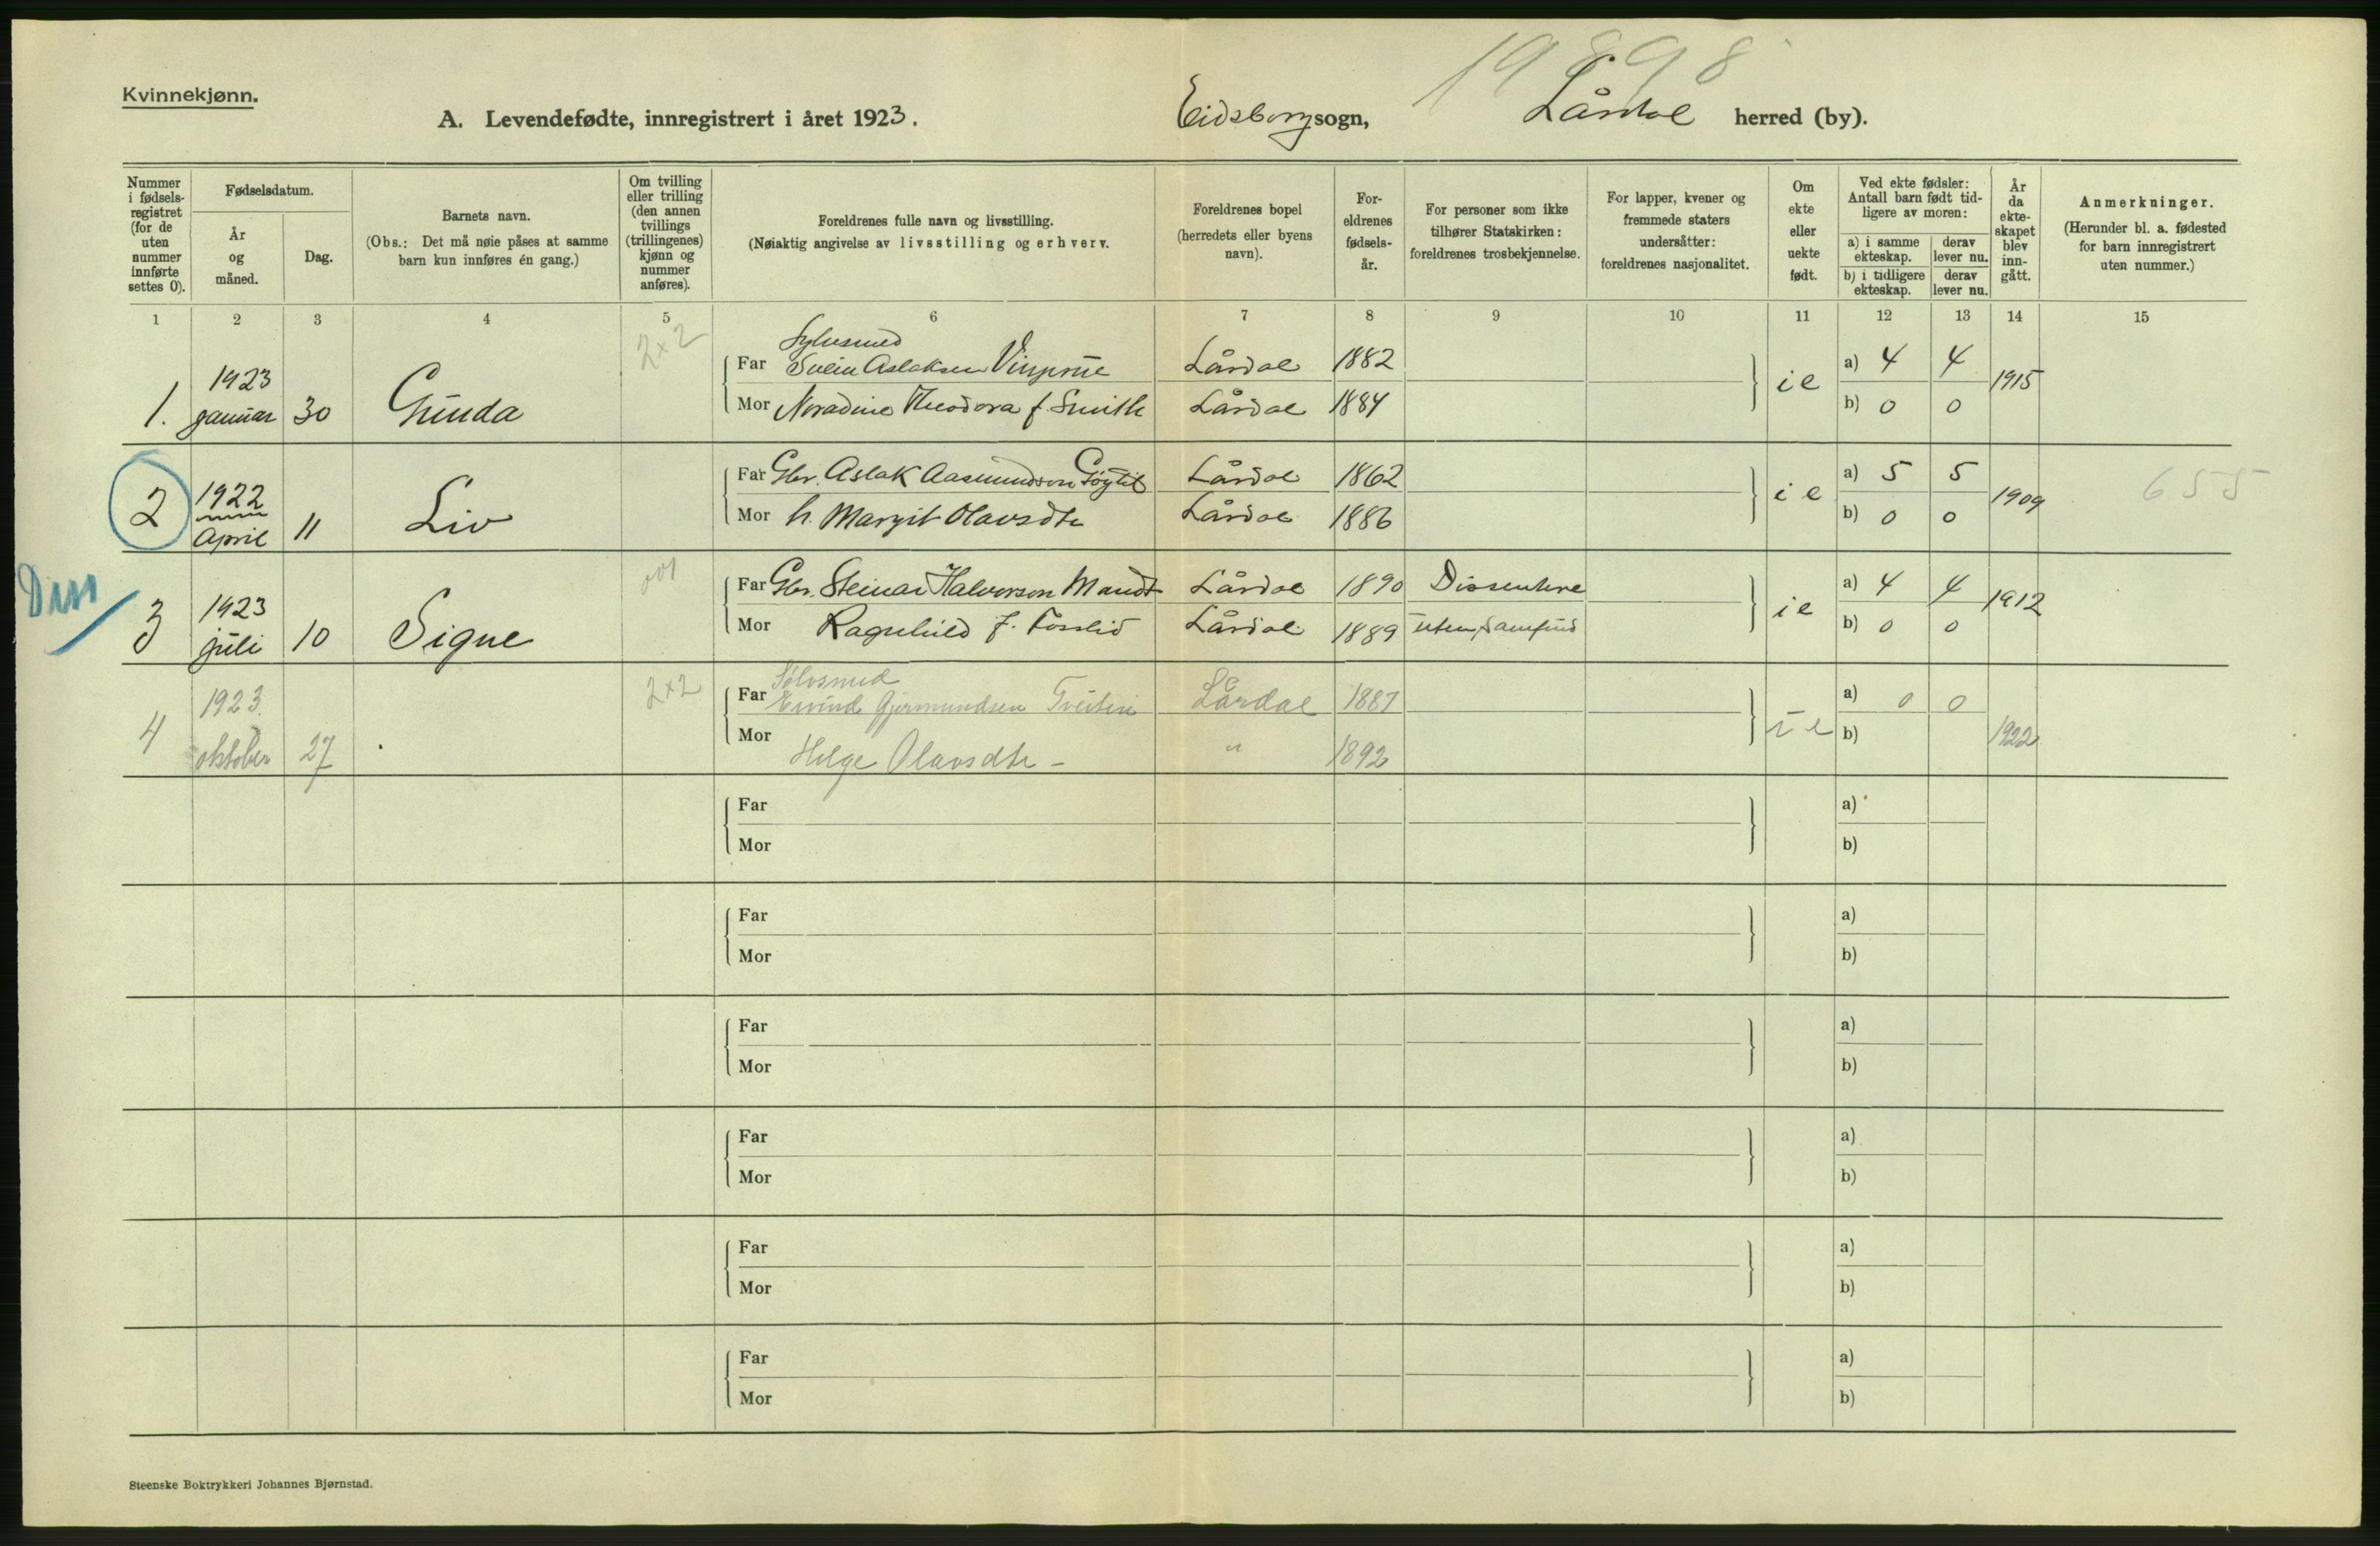 19898
Kvinnekjønn.
A. Levendefødte, innregistrert i året 1923. Eidsborg sogn, Lårdal herred (by).
Nummer i fødsels-registret (for de uten nummer innførte settes 0).
Fødselsdatum.
År og måned.
Dag.
Barnets navn.
(Obs.: Det må nøie påses at samme barn kun innføres én gang.)
Om tvilling eller trilling (den annen tvillings (trillingenes) kjønn og nummer anføres).
Foreldrenes fulle navn og livsstilling.
(Nøiaktig angivelse av livsstilling og erhverv.
Foreldrenes bopel (herredets eller byens navn).
For-eldrenes fødsels-år.
For personer som ikke tilhører Statskirken: foreldrenes trosbekjennelse.
For lapper, kvener og fremmede staters undersåtter: foreldrenes nasjonalitet.
Om ekte eller uekte født.
Ved ekte fødsler: Antall barn født tid-ligere av moren:
a) i samme ekteskap. derav lever nu.
b) i tidligere ekteskap. derav lever nu.
År da ekte-skapet blev inn-gått.
Anmerkninger.
(Herunder bl. a. fødested for barn innregistrert uten nummer.)
1 2 3 4 5 6 7 8 9 10 11 12 13 14 15
2×2
Sylvsmed
1923 Far Svein Aslaksen Vinjerue Lårdal 1882 a) 4 4
1. januar 30 Gunda Mor Noradine Theodora f. Smith Lårdal 1884 ie b) 0 0 1915
1922 Far Gbr. Aslak Aasmundson Lårdal 1862 a) 5 5
2 April 11 Liv Mor h. Margit Olavsdtr Lårdal 1886 ie b) 0 0 1909 655
Diss
1923 Far Gbr. Steinar Halvorson Mandt Lårdal 1890 Dissentere a) 4 4
3 juli 10 Signe Mor Ragnhild f. Fosslid Lårdal 1889 uten samfund ie b) 0 0 1912
2×2
Sølvsmed
1923. Far Eivind Gjermundsen Tveiten Lårdal 1887 a) 0 0
4 oktober 27 Mor Helge Olavsdtr – " 1892 ie b) 1922
Far a)
Mor b)
Far a)
Mor b)
Far a)
Mor b)
Far a)
Mor b)
Far a)
Mor b)
Far a)
Mor b)
Steenske Boktrykkeri Johannes Bjørnstad.